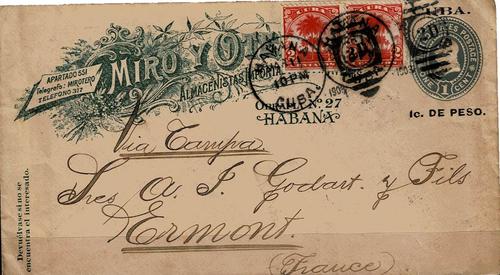 CUBA.
CUBA
CUBA
MIRO Y
APARTADO 551
Telegrafo: MIROTERO
TELEFONO 317
ALMACENISTAS IMPORTA
10 PM
CUBA.
1900
Nº 27
HABANA
1
1c. DE PESO.
Via Tampa
Sres A. J. Godart. y Fils
Ermont.
(France)
Devuélvase sino se
encuentra el interesado.